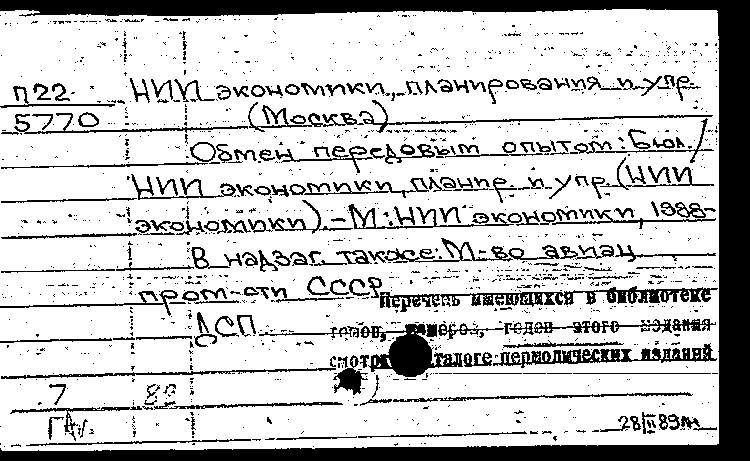 П22 НИИ экономики, планирования и упр.
5770 (Москва)
Обмен передовым опытом: Бюл. /
НИИ экономики, планир. и упр. (НИИ
экономики). – М.: НИИ экономики, 1988-
В надзаг. также: М-во авиац.
пром-сти СССР
Перечень имеющихся в библиотеке
ДСП томов, номеров, годов этого издания
смотри талоге периодических изданий
7 88
28/II 89